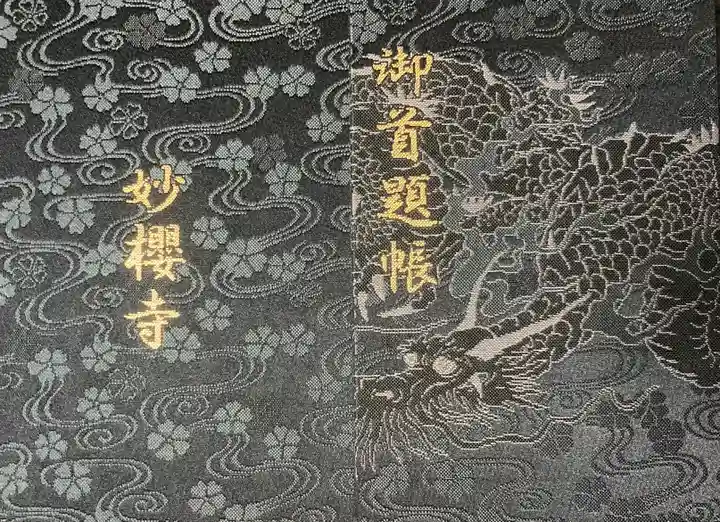 御首題帳
妙櫻寺